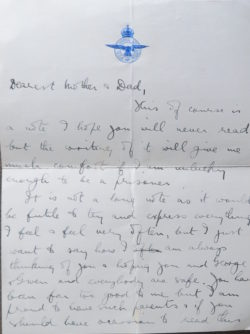 Dearest Mother & Dad,
This of course is
a note I hope you will never read
but the writing of it will give me
much comfort if I am unlucky
enough to be a prisoner.
It is not a long note as it would
be futile to try and express everything
I feel & feel very often, but I just
want to say how I am always
thinking of you & hoping you and George
Gwen and everybody are safe. You have
been far too good to me but I am
proud to have such parents & if you
should have occasion to read this